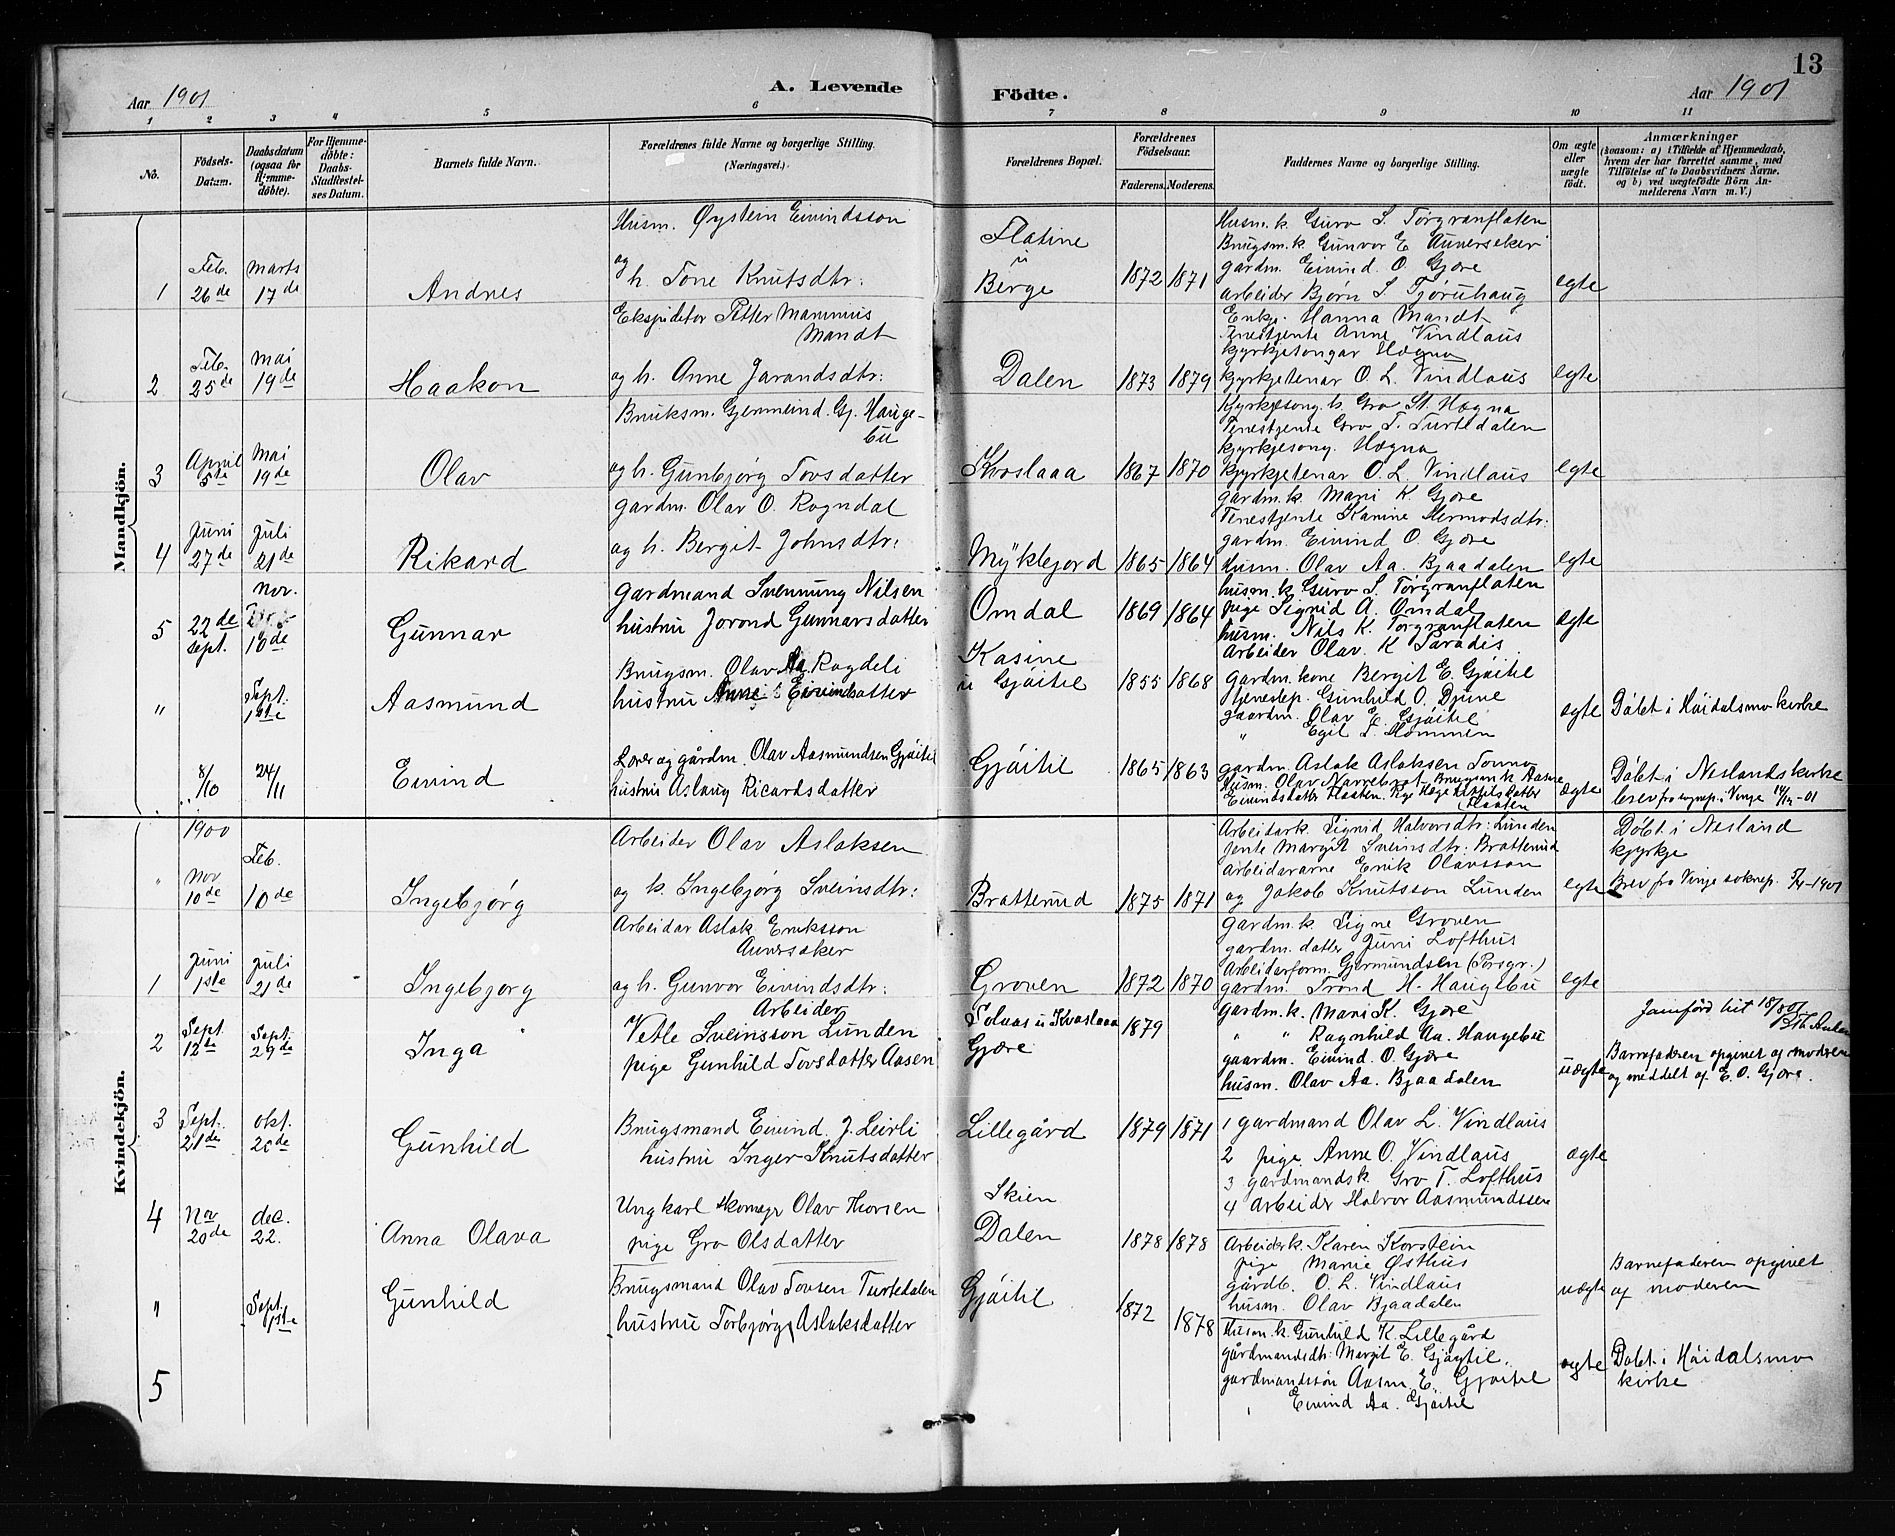 13
Aar 1901 A. Levende Födte. Aar 1901
1 2 3 4 5 6 7 8 9 10 11
No.
Födsels-Datum.
Daabsdatum (ogsaa for Hjemme-döbte).
For Hjemme-döbte: Daabs-Stadfæstel-ses Datum.
Barnets fulde Navn.
Forældrenes fulde Navne og borgerlige Stilling. (Næringsvei.)
Forældrenes Bopæl.
Forældrenes Födselsaar.
Faderens. Moderens.
Faddernes Navne og borgerlige Stilling.
Om ægte eller uægte födt.
Anmærkninger
(saasom: a) i Tilfælde af Hjemmedaab, hvem der har forrettet samme, med Tilföielse af to Daabsvidners Navne, og b) ved uægtefödte Börn An-melderens Navn m. V.)
Mandkjön.
1
Feb. 26de
Marts 17de
Andres
Husm. Øystein Eivindsson
og h. Tone Knutsdtr:
Flatine
u
Berge
1872 1871
Husm.k. Guro S. Torgranflaten
Brugsm.k. Gunvor E Aunersaker
gardm. Eivind O. Gjøre
arbeider Bjørn S Tjøruhaug
egte
2
Feb. 25de
Mai 19de
Haakon
Ekspeditør Petter Mannius
Mandt
og h. Anne Jarandsdtr:
Dalen
1873 1879
Enkje Hanna Mandt
Tenestjente Anne Vindlaus
Kyrkjesongar Hægna
Kyrkjetenar O. L. Vindlaus
egte
3
April 5te
Mai 19de
Olav
Bruksm. Gjermund Gj. Hauge-
bu
og h. Gunbjørg Tovsdatter
Kvoslaaa
1867 1870
Kyrkjesong.k. Gro St. Hægna
Tenestjente Gro T. Turtedalen
kyrkjesong. Hægna
kyrkjetenar O. L. Vindlaus
egte
4
Juni 27de
Juli 21de
Rikard
gardm. Olav O. Rogndal
og h. Bergit Johnsdtr:
Myklejord
1865 1864
gardm.k. Mari K Gjøre
Tenestjente Kanine Hermodsdtr:
gardm. Eivind O. Gjøre
Husm. Olav Aa. Bjaadalen
egte
5
22de sept.
nov. 10de
Gunnar
Gardmand Svennung Nilsen
hustru Jorond Gunnarsdatter
Omdal
1869 1864
husm.k. Guro S. Torgranflaten
pige Sigrid A. Omdal
husm. Nils K. Torgranflaten
Arbeider Olav K Paradis
ægte
"
Sept. 1ste
Aasmund
Brugsm. Olav Aa Rogdeli
hustru Anne Eivindsdatter
Kasine
u Gjøitil
1855 1868
gardm. kone Bergit E. Gjøitil
tjenestep. Gunhild O. Djuve
gaardm. Olav E. Gjøitil
" Egil T. Mommen
ægte
Döbt i Höidalsmo kirke
"
8/10
24/11
Eivind
Lærer og gårdm. Olav Aasmundsen Gjøitil
hustru Aslaug Ricardsdatter
Gjøitil
1865 1863
gardm. Aslak Aslaksen Tonna
Husm. Olav Narrebrot. Brugsm.k. Aasne
Eivindsdatter Flaaten. Pige Hæge Kittilsdatter
Flaaten
ægte
Döbt i Neslands kirke
brev fra sognep. i Vinje -01
Kvindekjön.
"
1900
Nov 10de
Feb. 10de
Ingebjørg
Arbeider Olav Aslaksen
og k. Ingebjørg Sveinsdtr:
Bratterud
1875 1871
Arbeidark. Sigrid Halvorsdtr: Lunden
jente Margit Sveinsdtr: Bratterud
arbeidararne Eirik Olavsson
og Jakob Knutsson Lunden
egte
Döbt i Nesland
kyrkje
Brev fra Vinje soknep. 1901
1
Juni 1ste
Juli 21de
Ingebjorg
Arbeidar Aslak Eriksson
Aunersaker
og h. Gunvor Eivindsdtr:
Groven
1872 1870
Gardm.k. Signe Groven
gardm. datter Juni Lofthus
Arbeidarform. Gjermundsen (Porsgr.)
gardm. Trond H. Haugebu
egte
2
Sept. 12te
Sept. 29de
Inga
Arbeider
Vetle Sveinsson Lunden
pige Gunhild Tovsdatter Aasen
Solaas u Kvoslaaa
Gjøre
1879
gardm.k. Mari K. Gjøre
" " Ragnhild Aa. Haugebu
gaardm. Eivind O. Gjøre
husm. Olav Aa. Bjaadalen
uægte
Barnefaderen opgivet af moderen
og meddelt af E. O. Gjøre.
3
Sept. 21de
okt. 20de
Gunhild
Brugsmand Eivind J. Leirli
hustru Inger Knutsdatter
Lillegård
1879 1871
1 gardmand Olav L. Vindlaus
2 pige Anne O. Vindlaus
3 gardmandsk. Gro T. Lofthus
4 Arbeider Halvor Aasmundssen
ægte
4
Nov 20de
dec. 22.
Anna Olava
Ungkarl skomagr Olav Thorsen
pige Gro Olsdatter
Skien
Dalen
1878 1878
Arbeiderk. Karen Korstein
pige Marie Østhus
gårdb. O. L. Vindlaus
husm. Olav Bjaadalen
uægte
Barnefaderen opgivet
af moderen
"
Sept. 1ste
Gunhild
Brugsmand Olav Tovsen Turtedalen
hustru Torbjørg Aslaksdatter
Gjøitil
1872 1878
Husm.k. Gunhild K. Lillegård
gårdmandsdtr: Margit E. Gjøytil.
gardmandssøn Aasm. E. Gjøitil
" Eivind Aa. Gjøitil
ægte
Dobt i Höidalsmo
kirke
5